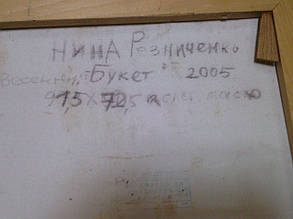 НИНА Резниченко
Весенний "Букет" 2005
91,5 х 72,5 холст масло